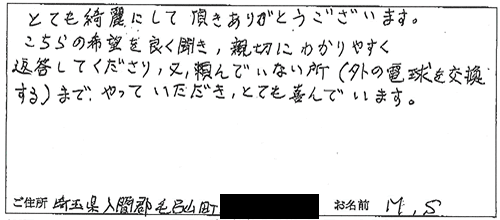 とても綺麗にして頂きありがとうございます。
こちらの希望を良く聞き、親切にわかりやすく
返答してくださり、又、頼んでいない所(外の電球を交換
する)まで、やっていただき、とても喜んでいます。
ご住所 埼玉県入間郡毛呂山町 お名前 M.S.